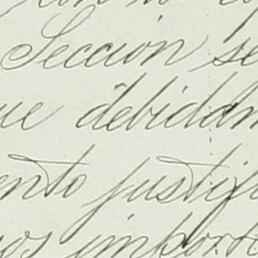 Sección se
ue debidam
ento justifi
os import